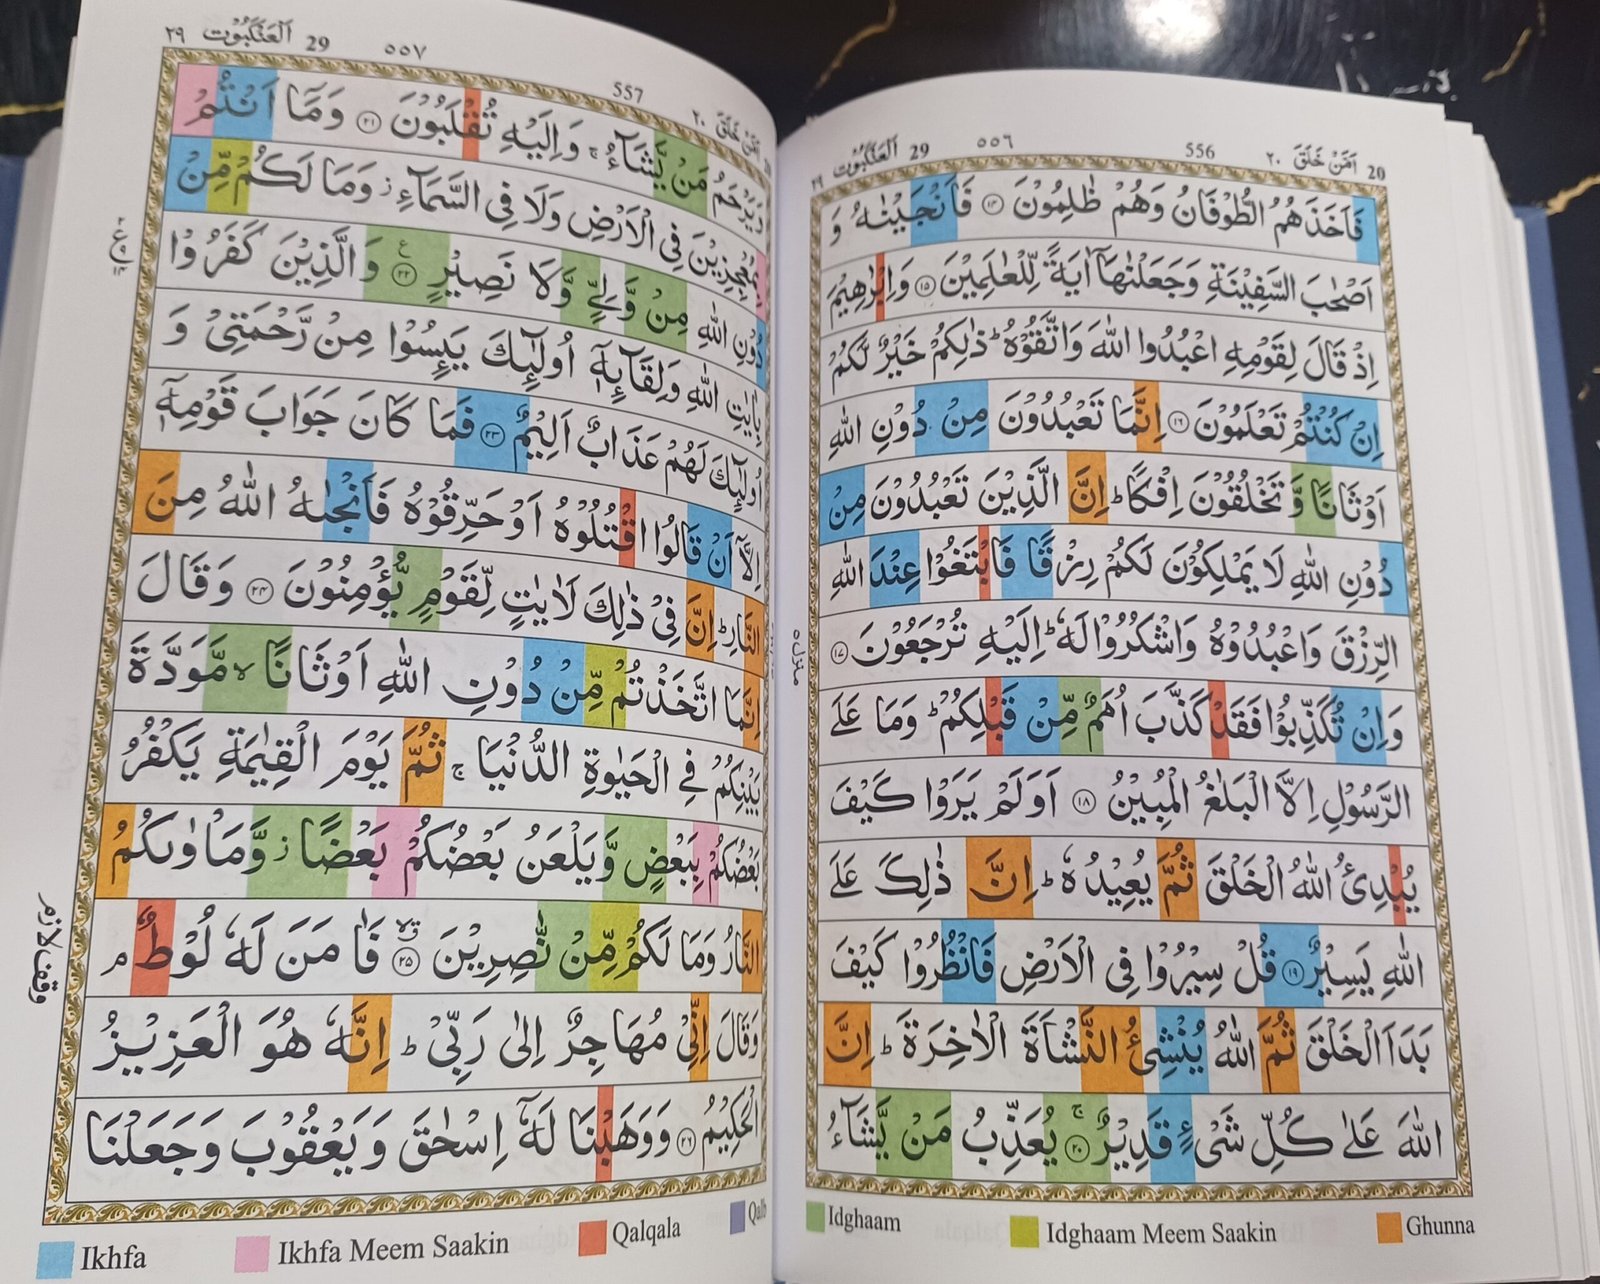 20 اَمَّنْ خَلَقَ ٢٠ 556 ٥٥٦ 29 اَلْعَنْكَبُوْت ٢٩
فَاَخَذَهُمُ الطُّوْفَانُ وَهُمْ ظٰلِمُوْنَ ﴿١٤﴾ فَاَنْجَيْنٰهُ وَ
اَصْحٰبَ السَّفِيْنَةِ وَجَعَلْنٰهَاۤ اٰيَةً لِّلْعٰلَمِيْنَ ﴿١٥﴾ وَاِبْرٰهِيْمَ
اِذْ قَالَ لِقَوْمِهِ اعْبُدُوا اللّٰهَ وَاتَّقُوْهُ ؕ ذٰلِكُمْ خَيْرٌ لَّكُمْ
اِنْ كُنْتُمْ تَعْلَمُوْنَ ﴿١٦﴾ اِنَّمَا تَعْبُدُوْنَ مِنْ دُوْنِ اللّٰهِ
اَوْثَانًا وَّ تَخْلُقُوْنَ اِفْكًا ؕ اِنَّ الَّذِيْنَ تَعْبُدُوْنَ مِنْ
دُوْنِ اللّٰهِ لَا يَمْلِكُوْنَ لَكُمْ رِزْقًا فَابْتَغُوْا عِنْدَ اللّٰهِ
الرِّزْقَ وَاعْبُدُوْهُ وَاشْكُرُوْا لَهٗ ؕ اِلَيْهِ تُرْجَعُوْنَ ﴿١٧﴾
وَاِنْ تُكَذِّبُوْا فَقَدْ كَذَّبَ اُمَمٌ مِّنْ قَبْلِكُمْ ؕ وَمَا عَلَى
الرَّسُوْلِ اِلَّا الْبَلٰغُ الْمُبِيْنُ ﴿١٨﴾ اَوَلَمْ يَرَوْا كَيْفَ
يُبْدِئُ اللّٰهُ الْخَلْقَ ثُمَّ يُعِيْدُهٗ ؕ اِنَّ ذٰلِكَ عَلَى
اللّٰهِ يَسِيْرٌ ﴿١٩﴾ قُلْ سِيْرُوْا فِى الْاَرْضِ فَانْظُرُوْا كَيْفَ
بَدَاَ الْخَلْقَ ثُمَّ اللّٰهُ يُنْشِئُ النَّشْاَةَ الْاٰخِرَةَ ؕ اِنَّ
اللّٰهَ عَلٰى كُلِّ شَىْءٍ قَدِيْرٌ ﴿٢٠﴾ ۚ يُعَذِّبُ مَنْ يَّشَآءُ
Idghaam Idghaam Meem Saakin Ghunna
منزل ٥
20 اَمَّنْ خَلَقَ ٢٠ 557 ٥٥٧ 29 اَلْعَنْكَبُوْت ٢٩
وَيَرْحَمُ مَنْ يَّشَآءُ ۚ وَاِلَيْهِ تُقْلَبُوْنَ ﴿٢١﴾ وَمَاۤ اَنْتُمْ
بِمُعْجِزِيْنَ فِى الْاَرْضِ وَلَا فِى السَّمَآءِ ؗ وَمَا لَكُمْ مِّنْ
دُوْنِ اللّٰهِ مِنْ وَّلِىٍّ وَّلَا نَصِيْرٍ ﴿٢٢﴾ ع وَالَّذِيْنَ كَفَرُوْا
بِاٰيٰتِ اللّٰهِ وَلِقَآئِهٖۤ اُولٰٓئِكَ يَئِسُوْا مِنْ رَّحْمَتِىْ وَ
اُولٰٓئِكَ لَهُمْ عَذَابٌ اَلِيْمٌ ﴿٢٣﴾ فَمَا كَانَ جَوَابَ قَوْمِهٖۤ
اِلَّاۤ اَنْ قَالُوا اقْتُلُوْهُ اَوْ حَرِّقُوْهُ فَاَنْجٰىهُ اللّٰهُ مِنَ
النَّارِ ؕ اِنَّ فِىْ ذٰلِكَ لَاٰيٰتٍ لِّقَوْمٍ يُّؤْمِنُوْنَ ﴿٢٤﴾ وَقَالَ
اِنَّمَا اتَّخَذْتُمْ مِّنْ دُوْنِ اللّٰهِ اَوْثَانًا ۙ مَّوَدَّةَ
بَيْنِكُمْ فِى الْحَيٰوةِ الدُّنْيَا ۚ ثُمَّ يَوْمَ الْقِيٰمَةِ يَكْفُرُ
بَعْضُكُمْ بِبَعْضٍ وَّيَلْعَنُ بَعْضُكُمْ بَعْضًا ؗ وَّمَاْوٰىكُمُ
النَّارُ وَمَا لَكُمْ مِّنْ نّٰصِرِيْنَ ﴿٢٥﴾ فَاٰمَنَ لَهٗ لُوْطٌ ۘ
وَقَالَ اِنِّىْ مُهَاجِرٌ اِلٰى رَبِّىْ ؕ اِنَّهٗ هُوَ الْعَزِيْزُ
الْحَكِيْمُ ﴿٢٦﴾ وَوَهَبْنَا لَهٗۤ اِسْحٰقَ وَيَعْقُوْبَ وَجَعَلْنَا
وقف لازم
Ikhfa Ikhfa Meem Saakin Qalqala Qalb